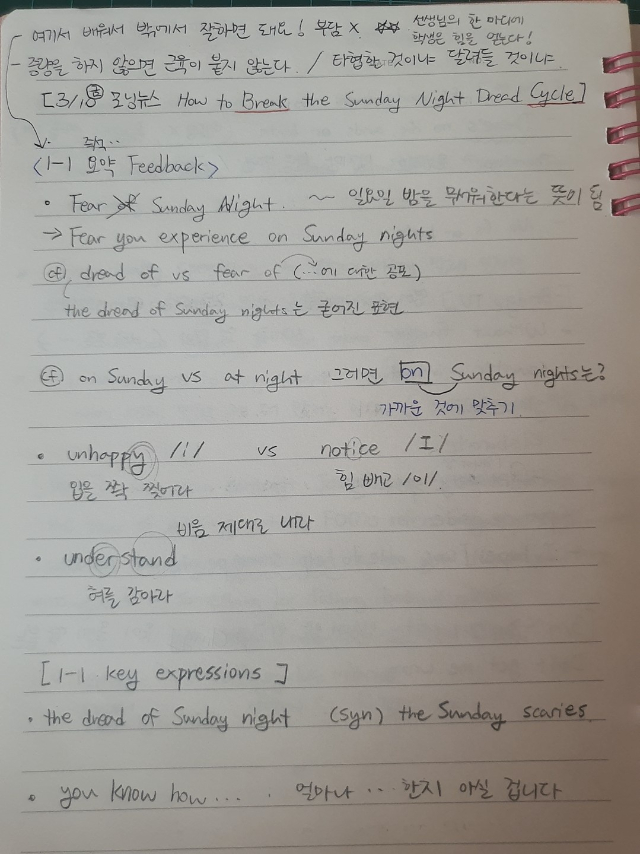 여기서 배워서 밖에서 잘하면 돼요! 부담 X. ☆☆ 선생님의 한 마디에
학생은 힘을 얻는다!
- 증량을 하지 않으면 근육이 붙지 않는다. / 타협할 것이냐 달려들 것이냐.
[3/18 모닝뉴스 How to Break the Sunday Night Dread Cycle]
<1-1 요약 Feedback>
• Fear of Sunday Night. ~ 일요일 밤을 무서워한다는 뜻이 됨
→ Fear you experience on Sunday nights
cf) dread of vs fear of (…에 대한 공포)
the dread of Sunday nights는 굳어진 표현
cf) on Sunday vs at night 그러면 on Sunday nights는?
가까운 것에 맞추기.
• unhappy /i/ vs notice /I/
입을 쫙 찢어라 힘 빼고 /이/.
비음 제대로 내라
• understand
혀를 감아라
[1-1 key expressions]
• the dread of Sunday night (syn) the Sunday scaries.
• you know how .... . 얼마나 … 한지 아실 겁니다